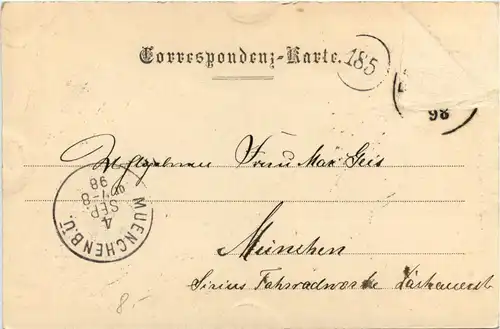 Correspondenz-Karte.
185
98
Frau Max Geis
München
Sirius Fahrradwerke
MUENCHEN B.Ü.
4
SEP.
98
8.-